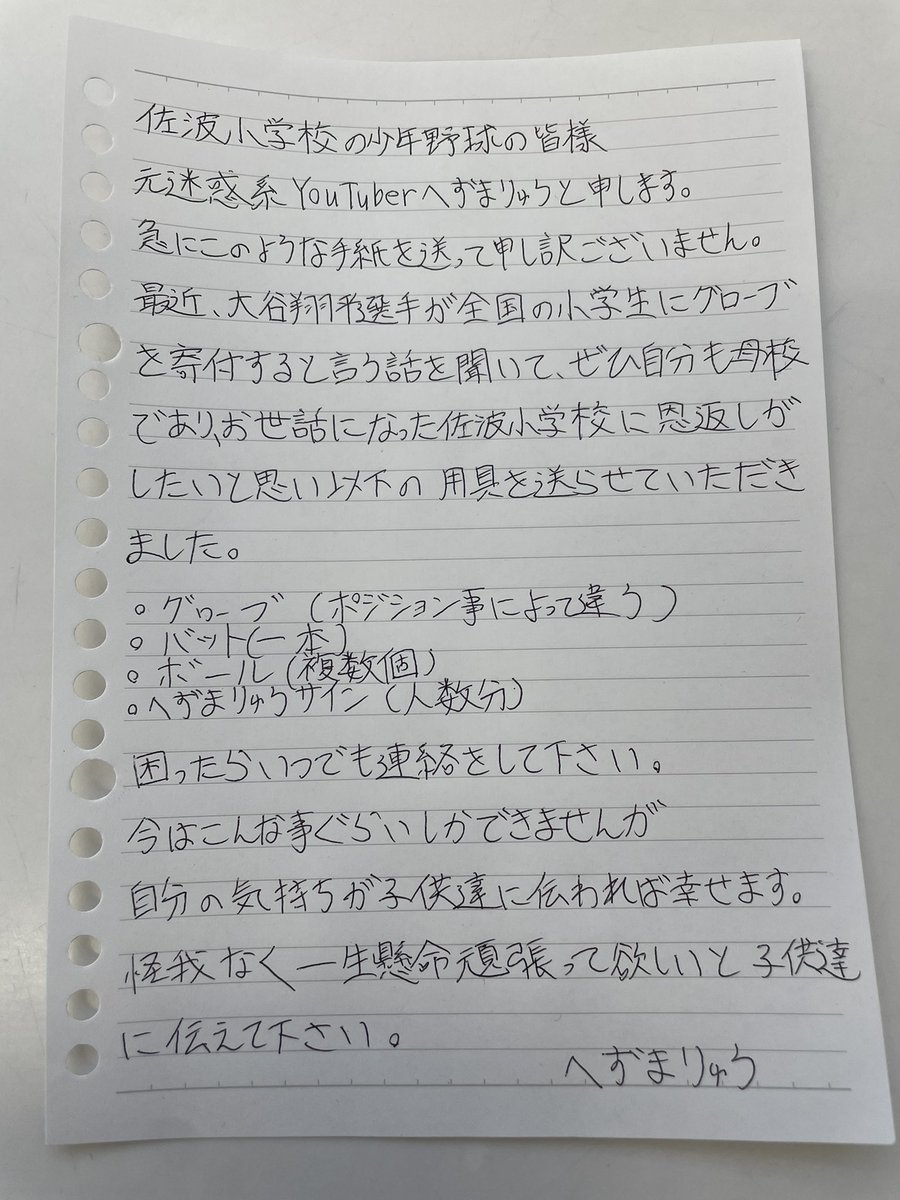 佐波小学校の少年野球の皆様
元迷惑系YouTuberへずまりゅうと申します。
急にこのような手紙を送って申し訳ございません。
最近、大谷翔平選手が全国の小学生にグローブ
を寄付すると言う話を聞いて、ぜひ自分も母校
であり、お世話になった佐波小学校に恩返しが
したいと思い以下の用具を送らせていただき
ました。
。グローブ(ポジション事によって違う)
。バット(一本)
。ボール(複数個)
。へずまりゅうサイン(人数分)
困ったらいつでも連絡をして下さい。
今はこんな事ぐらいしかできませんが
自分の気持ちが子供達に伝われば幸せます。
怪我なく一生懸命頑張って欲しいと子供達
に伝えて下さい。
へずまりゅう